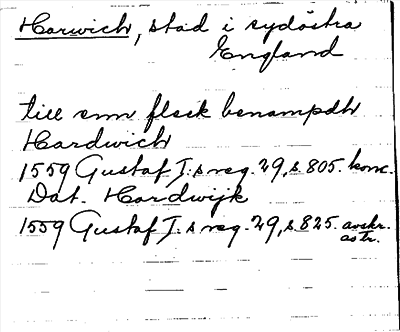 Harwich, stad i sydöstra
England
till enn fleck benampdh
Hardwich
1559 Gustaf I:s reg. 29, s. 805. konc.
Dat. Hardwijk
1559 Gustaf I:s reg. 29, s. 825. avskr.
astr.